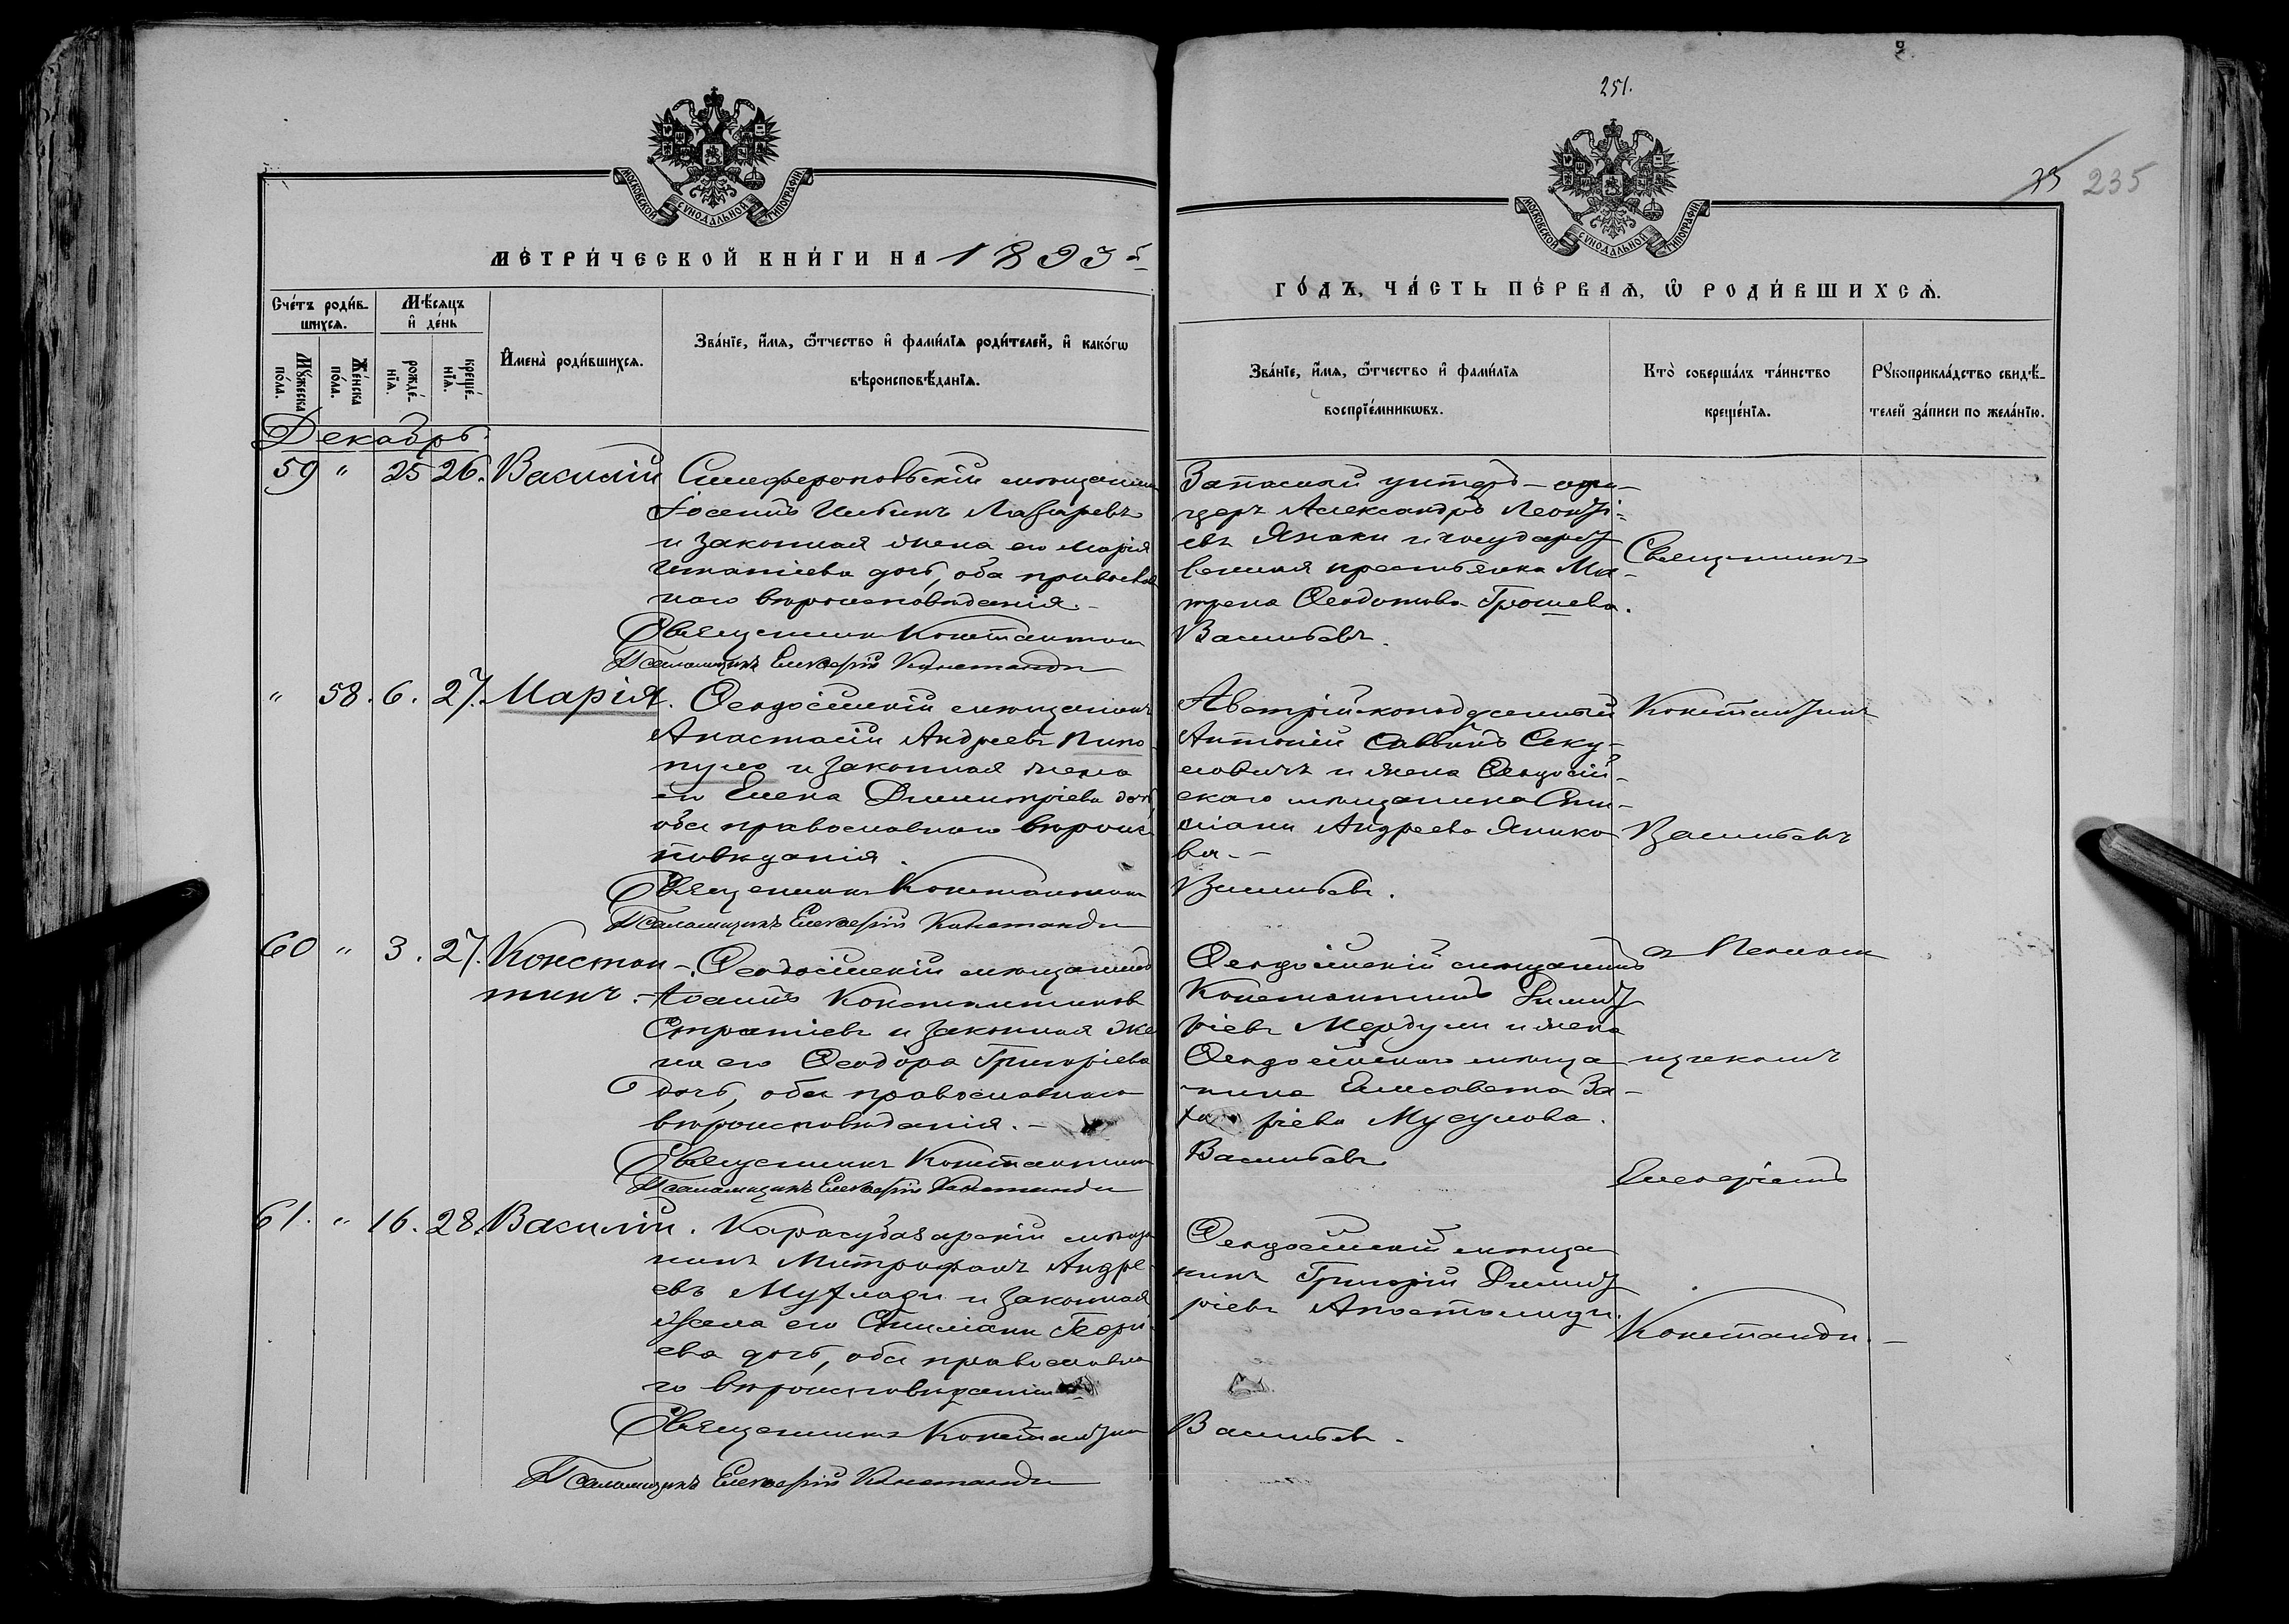 251.
235
МОСКОВСКОЙ СѴНОДАЛЬНОЙ ТИПОГРАФІИ
МОСКОВСКОЙ СѴНОДАЛЬНОЙ ТИПОГРАФІИ
МЕТРИ́ЧЕСКОЙ КНИ́ГИ НА 1893
ГО́ДЪ, ЧА́СТЬ ПЕ́РВАѦ, Ѡ҆ РОДИ́ВШИХСѦ.
Сче́тъ роди́в-
шихсѧ.
Мѣ́сѧцъ
и҆ де́нь
Мꙋ́жеска
по́ла.
Же́нска
по́ла.
рожде́-
нїѧ.
креще́-
нїѧ.
И҆мена̀ роди́вшихсѧ.
Зва́нїе, и҆́мѧ, ѻ҆́тчество и҆ фами́лїѧ роди́телей, и҆ како́гѡ
вѣроисповѣ́данїѧ.
Зва́нїе, и҆́мѧ, ѻ҆́тчество и҆ фами́лїѧ
воспрїе́мникѡвъ.
Кто̀ соверша́лъ та́инство
креще́нїѧ.
Рꙋкоприкла́дство свидѣ́-
телей за́писи по жела́нїю.
Декабрь
59 " 25 26. Василій Симферопольскій мѣщанинъ
Іосифъ Ильинъ Лазаревъ
и законная жена его Марія
Игнатіева дочь, оба православ
наго вѣроисповѣданія.
Священникъ Константинъ
Псаломщикъ Елевферій Константи
Запасный унтеръ-офи-
церъ Александръ Леонті-
евъ Янаки и государст
венная крестьянка Ма-
трена Ѳеодотова Грошева.
Васильевъ.
Священникъ
" 58. 6. 27. Марія. Ѳеодосійскій мѣщанинъ
Анастасій Андреевъ Пипо-
пуло и законная жена
его Елена Димитріева дочь,
оба православнаго вѣроис
повѣданія.
Священникъ Константинъ
Псаломщикъ Елевферій Константи
Австрійскоподданный
Антоній Саввинъ Секу-
ловичъ и жена Ѳеодосій-
скаго мѣщанина Сти-
ліани Андреева Янико
ва.-
Васильевъ.
Константинъ
Васильевъ
60 " 3. 27. Констан-
тинъ.
Ѳеодосійскій мѣщанинъ
Іоаннъ Константиновъ
Стратіевъ и законная же
на его Ѳеодора Григоріева
дочь, оба православнаго
вѣроисповѣданія.-
Священникъ Константинъ
Псаломщикъ Елевферій Константи
Ѳеодосійскій мѣщанинъ
Константинъ Димит
ріевъ Мердули и жена
Ѳеодосійскаго мѣща-
нина Елисавета За-
ха ріева Мусулова.
Васильевъ
съ Псалом
щикомъ
Елевферіемъ
61. " 16. 28. Василій. Карасубазарскій мѣща
нинъ Митрофанъ Андре-
евъ Муфлази и законная
жена его Стиліани Георгі
ева дочь, оба православна
го вѣроисповѣданія
Священникъ Константинъ
Псаломщикъ Елевферій Константи
Ѳеодосійскій мѣща
нинъ Григорій Димит
ріевъ Апостолиди.
Васильевъ.
Константи.-